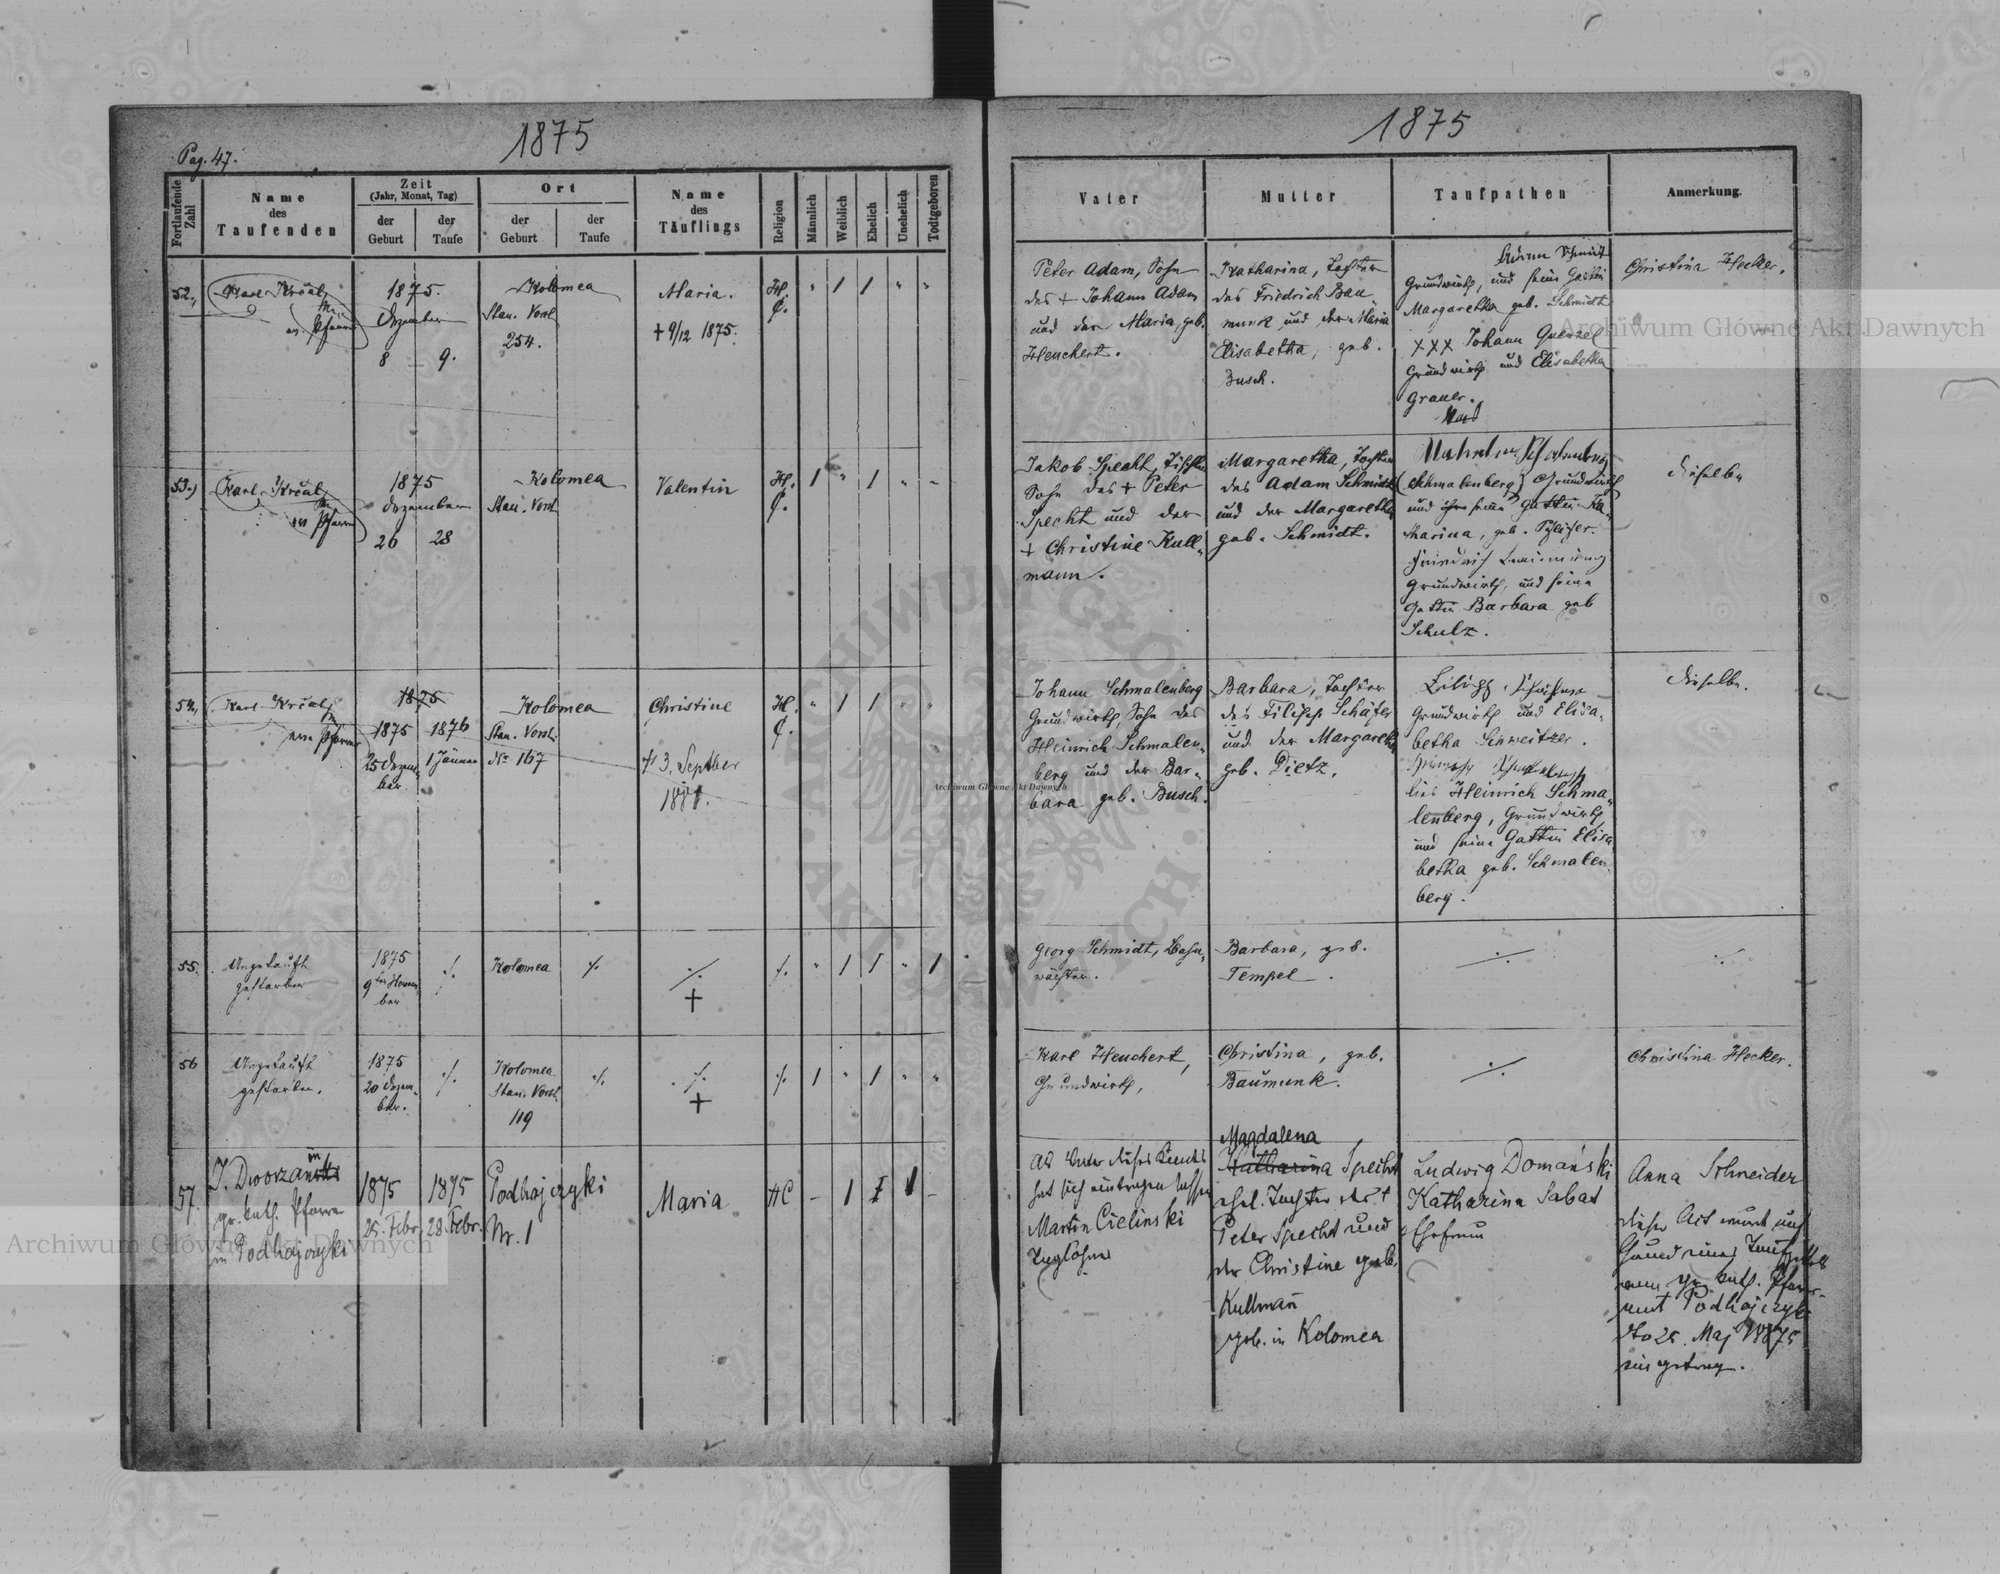 1875
Pag. 47.
Fortlaufende Zahl
Name
des
Taufenden
Zeit
(Jahr, Monat, Tag)
der Geburt
der Taufe
Ort
der Geburt
der Taufe
Name
des
Täuflings
Religion
Männlich
Weiblich
Ehelich
Unehelich
Todtgeboren
52.,
Karl Królly
Pfarrer
1875.
Dezember
8 9.
Kolomea
Stan. Vorst.
254.
Maria.
+ 9/12 1875.
H. C.
" / / " "
53.,
Karl Królly
Pfarrer
1875
Dezember
26 28
Kolomea
Stan. Vorst
Valentin
H. C.
/ " / " "
54.,
Karl Królly
Pfarrer
1875
1875 1876
25 Dezem-
ber
1 Jänner
Kolomea
Stan. Vorst.
No 167
Christine
+ 3. Septber
H. C.
" / / " "
55.
Ungetauft
gestorben
1875
9ten Novem-
ber
./.
Kolomea
./.
./.
+
./.
" / / " /
56
Ungetauft
gestorben.
1875
20 Dezem-
ber.
./.
Kolomea
Stan. Vorst
119
./.
./.
+
./.
/ " / " "
57.
J. Dworzan
gr. kath. Pfarre
in Podhajczyki
1875
25. Febr.
1875
28 Febr.
Podhajczyki
Nr. 1
Maria
HC
1875
Vater
Mutter
Taufpathen
Anmerkung.
Peter Adam, Sohn
des + Johann Adam
und der Maria, geb.
Heuchert.
Katharina, Tochter
des Friedrich Bau-
munk und der Maria
Elisabetha, geb.
Busch.
Adam Schmidt
Grundwirth, und seine Gattin
Margaretha geb. Schmidt
XXX Johann Quenzel
Grundwirth und Elisabetha
Grauer.
Christina Hecker.
Jakob Specht,
Sohn des + Peter
Specht und der
+ Christine Kull-
mann.
Margaretha, Tochter
des Adam Schmidt
und der Margaretha
geb. Schmidt.
(Schmalenberg) Grundwirth
und seine Gattin Ka-
tharina, geb.
Grundwirth, und seine
Gattin Barbara geb
Schulz.
dieselbe
Johann Schmalenberg
Grundwirth, Sohn des
Heinrich Schmalen-
berg und der Bar-
bara geb. Busch.
Barbara, Tochter
des Filipp Schäfer
und der Margareth
geb. Dietz.
Grundwirth und Elisa-
betha Schweitzer.
lies Heinrich Schma-
lenberg, Grundwirth
und seine Gattin Elisa
betha geb. Schmalen
berg.
dieselbe.
Georg Schmidt, Bahn-
wächter.
Barbara, geb.
Tempel.
./.
./.
Karl Heuchert,
Grundwirth,
Christina, geb.
Baumunk.
./.
Christina Hecker.
Als Vater dieses Kindes
hat sich eintragen lassen
Martin Cielinski
Taglöhner
Magdalena
Katharina Specht
ehel. Tochter des +
Peter Specht und
der Christine geb.
Kullmann
geb. in Kolomea
Ludwig Domański
Katharina Sabat
Ehefrau
Anna Schneider
Dieser Act wurde auf
Grund eines
vom gr. kath. Pfarr-
amt Podhajczyki
dto 25. Maj 1875
eingetrag.
Archiwum Główne Akt Dawnych
Archiwum Główne Akt Dawnych
Archiwum Główne Akt Dawnych
ARCHIWUM GŁÓWNE AKT DAWNYCH